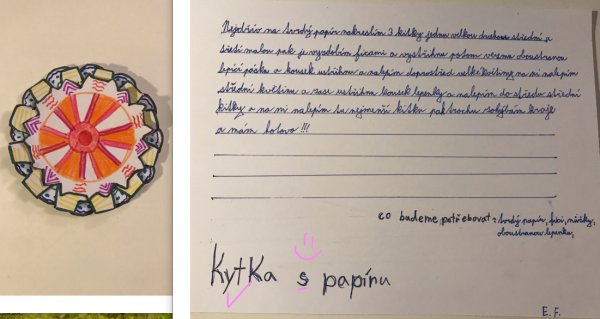 Nejdřív na tvrdý papír nakreslím 3 kitky jednu velkou druhou střední a
třetí malou pak je vyzdobím fixami a vystřihnu potom vezmu doustranou
lepící pásku a kousek ustřihnu a nalepím doprostřed velké květiny na ni nalepím
střední květinu a zase ustřihnu kousek lepenky a nalepím do středu střední
kitky a na ni nalepím tu nejmenší kitku pak trochu zohýbám kraje
a mám hotovo !!!
co budeme potřebovat: tvrdý papír, fixi, nůžky,
doustranou lepenku,
Kytka s papíru
E. F.